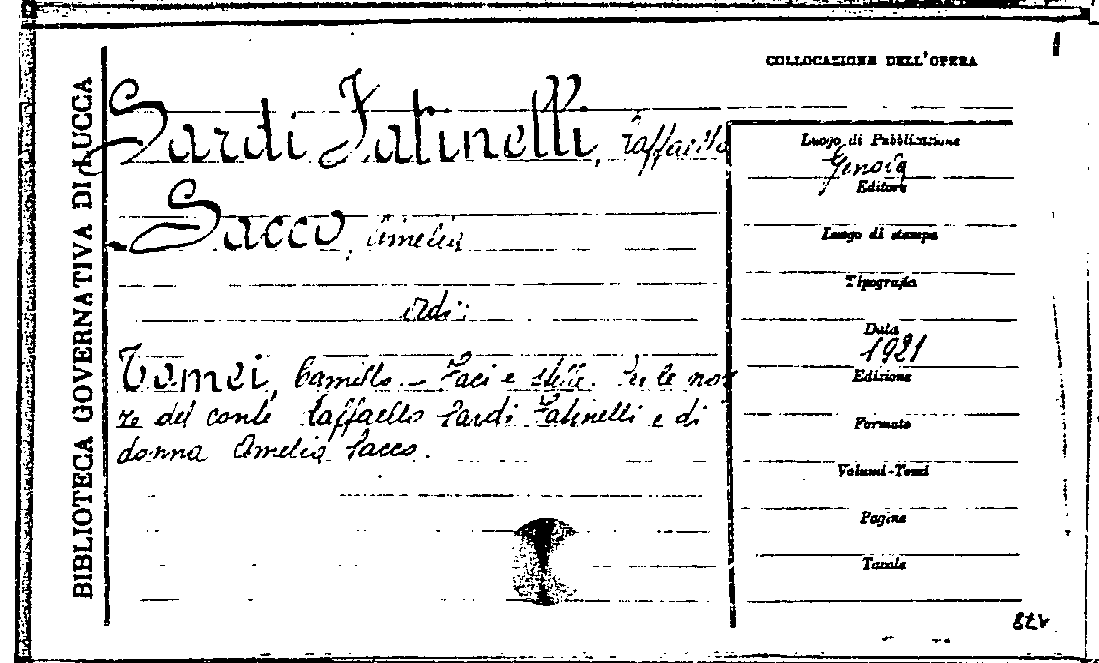 COLLOCAZIONE DELL'OPERA
BIBLIOTECA GOVERNATIVA DI LUCCA
Sardi Fatinelli, Raffaello
Sacco, Amelia
vedi:
Tomei, Camillo. - Faci e stelle. Per le noz
ze del conte Raffaello Sardi Fatinelli e di
donna Amelia Sacco.
Luogo di Pubblicazione
Genova
Editore
Luogo di stampa
Tipografia
Data
1921
Edizione
Formato
Volumi-Tomi
Pagine
Tavole